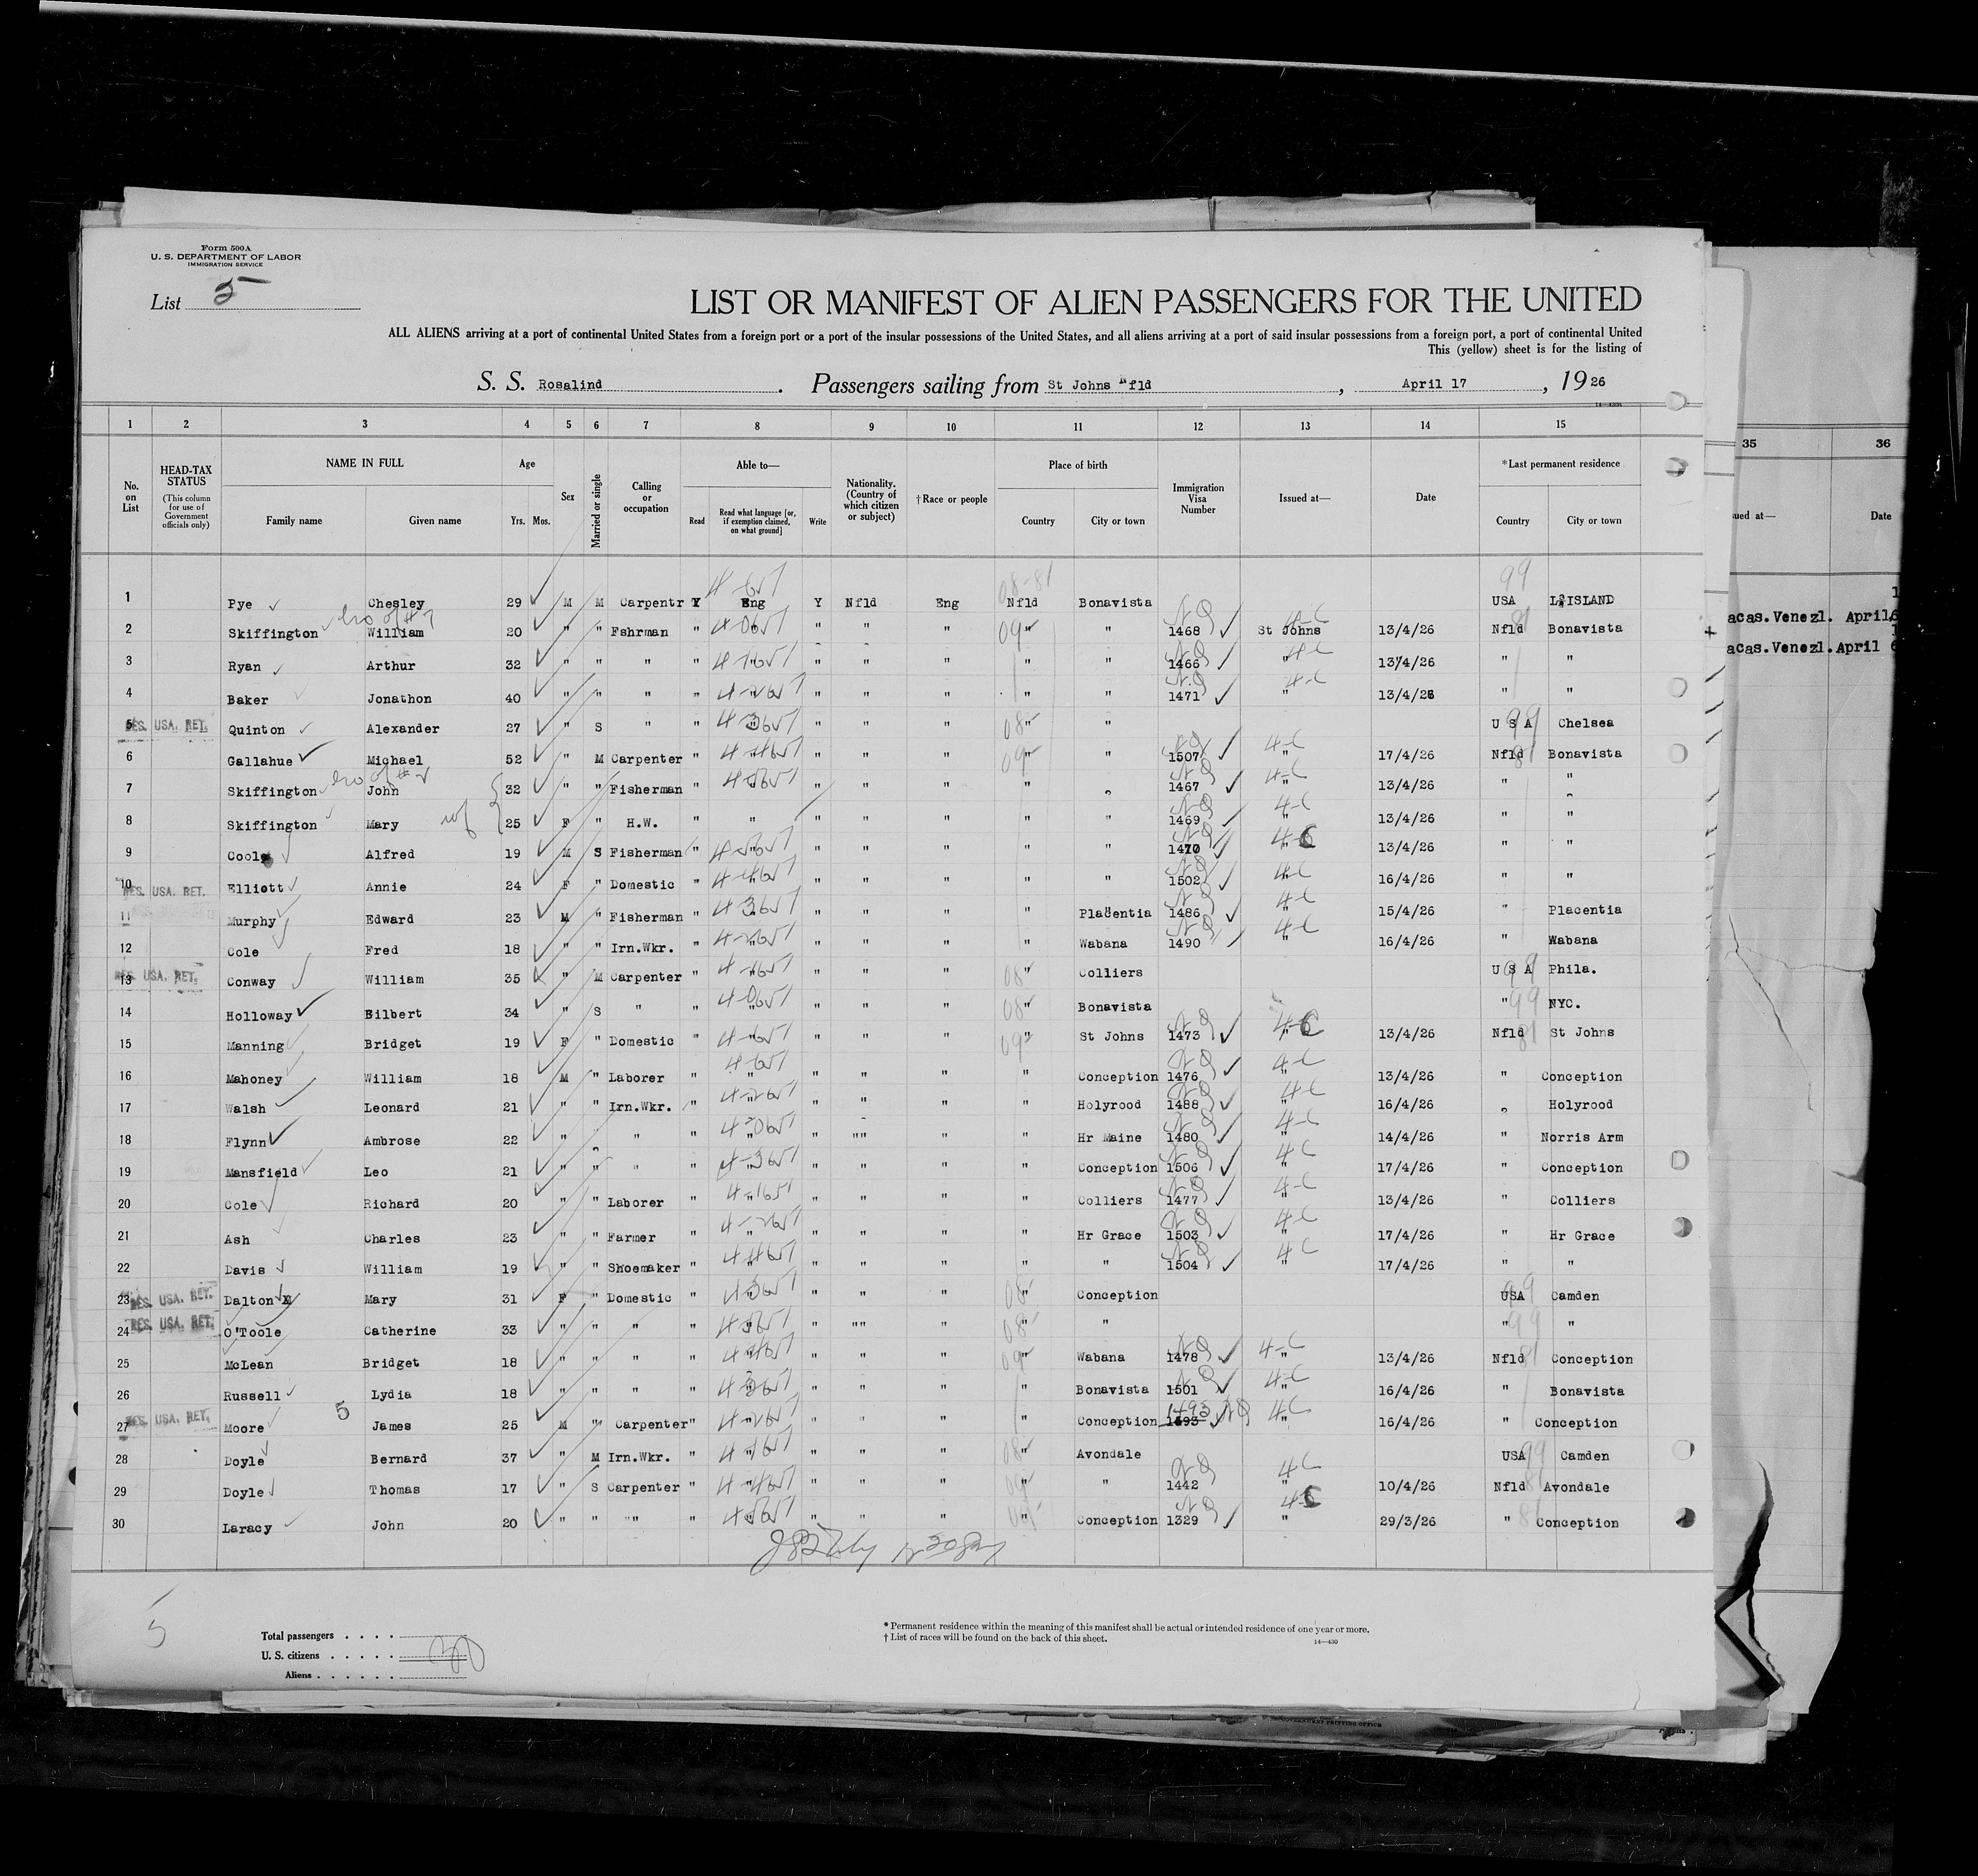 Form 500A
U. S. DEPARTMENT OF LABOR
IMMIGRATION SERVICE
List 5
LIST OR MANIFEST OF ALIEN PASSENGERS FOR THE UNITED
ALL ALIENS arriving at a port of continental United States from a foreign port or a port of the insular possessions of the United States, and all aliens arriving at a port of said insular possessions from a foreign port, a port of continental United
This (yellow) sheet is for the listing of
S. S. Rosalind. Passengers sailing from St Johns Nfld, April 17, 1926
1 2 3 4 5 6 7 8 9 10 11 12 13 14 15
No. on List
HEAD-TAX STATUS (This column for use of Government officials only)
NAME IN FULL Family name Given name
Age Yrs. Mos.
Sex
Married or single
Calling or occupation
Able to— Read Read what language [or, if exemption claimed, on what ground] Write
Nationality. (Country of which citizen or subject)
†Race or people
Place of birth Country City or town
Immigration Visa Number
Issued at—
Date
*Last permanent residence Country City or town
35 36
Issued at— Date
1 Pye Chesley 29 M M Carpentr Y Eng Y Nfld Eng Nfld Bonavista USA L.ISLAND
2 Skiffington William 20 " " Fshrman " " " " " " " 1468 St Johns 13/4/26 Nfld Bonavista
3 Ryan Arthur 32 " " " " " " " " " " 1466 " 13/4/26 " "
4 Baker Jonathon 40 " " " " " " " " " " 1471 " 13/4/26 " "
5 RES. USA. RET. Quinton Alexander 27 " S " " " " " " " " U S A Chelsea
6 Gallahue Michael 52 " M Carpenter " " " " " " " 1507 " 17/4/26 Nfld Bonavista
7 Skiffington John 32 " " Fisherman " " " " " " " 1467 " 13/4/26 " "
8 Skiffington Mary 25 F " H.W. " " " " " " " 1469 " 13/4/26 " "
9 Coole Alfred 19 M S Fisherman " " " " " " " 1470 " 13/4/26 " "
10 RES. USA. RET. Elliott Annie 24 F " Domestic " " " " " " " 1502 " 16/4/26 " "
11 Murphy Edward 23 M " Fisherman " " " " " " Placentia 1486 " 15/4/26 " Placentia
12 Cole Fred 18 " " Irn.Wkr. " " " " " " Wabana 1490 " 16/4/26 " Wabana
13 RES. USA. RET. Conway William 35 " M Carpenter " " " " " " Colliers U S A Phila.
14 Holloway Gilbert 34 " S " " " " " " " Bonavista " NYC.
15 Manning Bridget 19 F " Domestic " " " " " " St Johns 1473 " 13/4/26 Nfld St Johns
16 Mahoney William 18 M " Laborer " " " " " " Conception 1476 " 13/4/26 " Conception
17 Walsh Leonard 21 " " Irn.Wkr. " " " " " " Holyrood 1488 " 16/4/26 " Holyrood
18 Flynn Ambrose 22 " " " " " " "" " " Hr Maine 1480 " 14/4/26 " Norris Arm
19 Mansfield Leo 21 " " " " " " " " " Conception 1506 " 17/4/26 " Conception
20 Cole Richard 20 " " Laborer " " " " " " Colliers 1477 " 13/4/26 " Colliers
21 Ash Charles 23 " " Farmer " " " " " " Hr Grace 1503 " 17/4/26 " Hr Grace
22 Davis William 19 " " Shoemaker " " " " " " " 1504 " 17/4/26 " "
23 RES. USA. RET. Dalton Mary 31 F " Domestic " " " " " " Conception USA Camden
24 RES. USA. RET. O'Toole Catherine 33 " " " " " " "" " " " " "
25 McLean Bridget 18 " " " " " " " " " Wabana 1478 " 13/4/26 Nfld Conception
26 Russell Lydia 18 " " " " " " " " " Bonavista 1501 " 16/4/26 " Bonavista
27 RES. USA. RET. Moore 5 James 25 M " Carpenter " " " " " " Conception 1493 " 16/4/26 " Conception
28 Doyle Bernard 37 " M Irn.Wkr. " " " " " " Avondale USA Camden
29 Doyle Thomas 17 " S Carpenter " " " " " " " 1442 " 10/4/26 Nfld Avondale
30 Laracy John 20 " " "" " " " " " " Conception 1329 " 29/3/26 " Conception
acas.Venezl. April
acas.Venezl. April 6
5
Total passengers
U. S. citizens
Aliens
30
* Permanent residence within the meaning of this manifest shall be actual or intended residence of one year or more.
† List of races will be found on the back of this sheet.
14—430
GOVERNMENT PRINTING OFFICE